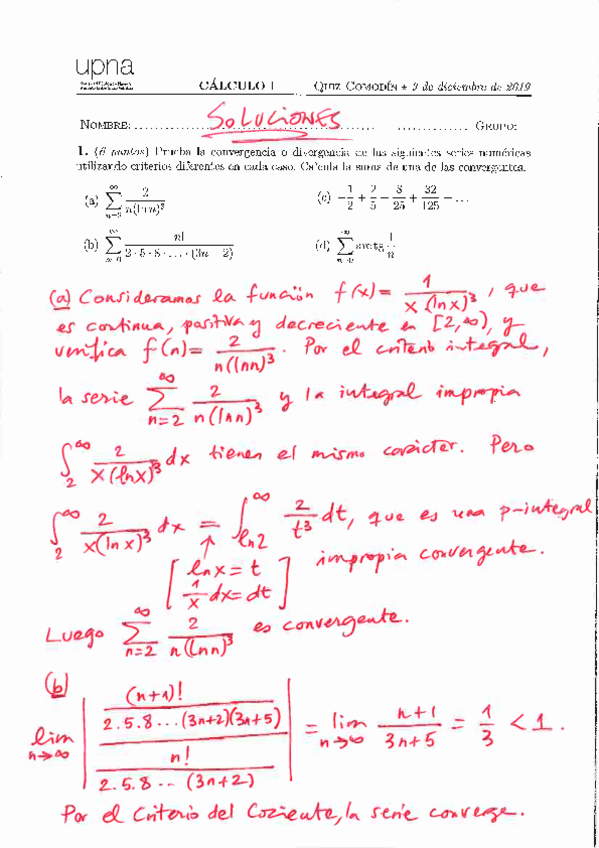 upna
CÁLCULO I QUIZ COMODÍN ⋆ 3 de diciembre de 2019
NOMBRE: SOLUCIONES GRUPO:
1. (6 puntos) Prueba la convergencia o divergencia de las siguientes series numéricas
utilizando criterios diferentes en cada caso. Calcula la suma de una de las convergentes.
(a) ∑_{n=2}^{∞} 2/(n(ln n)^3) (c) −1/2 + 2/5 − 8/25 + 32/125 − …
(b) ∑ n!/(2·5·8·…·(3n+2)) (d) ∑ arctg 1/n
(a) Consideramos la función f(x) = 1/(x(ln x)^3), que
es continua, positiva y decreciente en [2,∞), y
verifica f(n) = 2/(n(ln n)^3). Por el criterio integral,
la serie ∑_{n=2}^{∞} 2/(n(ln n)^3) y la integral impropia
∫_2^∞ 2/(x(ln x)^3) dx tienen el mismo carácter. Pero
∫_2^∞ 2/(x(ln x)^3) dx = ∫_{ln 2}^∞ 2/t^3 dt, que es una p-integral
↑ [ln x = t
1/x dx = dt] impropia convergente.
Luego ∑_{n=2}^{∞} 2/(n(ln n)^3) es convergente.
(b)
lim_{n→∞} | ((n+1)!/(2.5.8...(3n+2)(3n+5))) / (n!/(2.5.8...(3n+2))) | = lim_{n→∞} (n+1)/(3n+5) = 1/3 < 1.
Por el Criterio del Cociente, la serie converge.